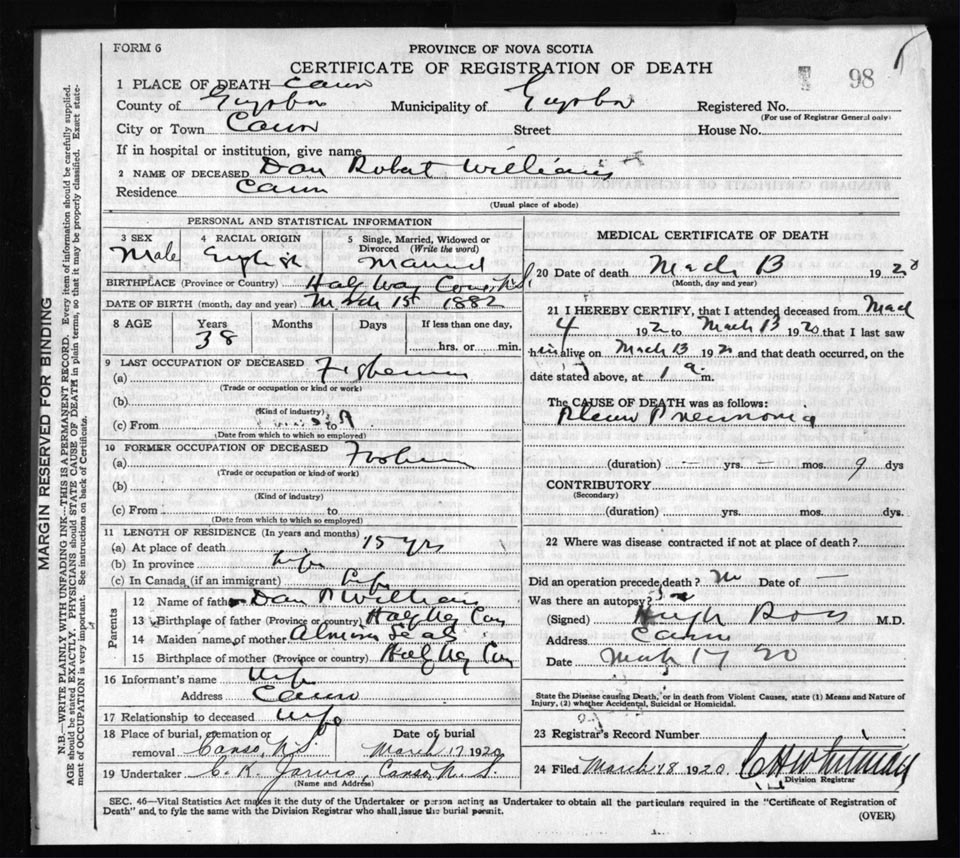 FORM 6
PROVINCE OF NOVA SCOTIA
CERTIFICATE OF REGISTRATION OF DEATH
98
1 PLACE OF DEATH Canso
County of Guysboro Municipality of Guysboro Registered No.
(For use of Registrar General only)
City or Town Canso Street House No.
If in hospital or institution, give name
2 NAME OF DECEASED Dan Robert Williams
Residence Canso
(Usual place of abode)
PERSONAL AND STATISTICAL INFORMATION
3 SEX 4 RACIAL ORIGIN 5 Single, Married, Widowed or Divorced (Write the word)
Male English Married
BIRTHPLACE (Province or Country) Half Way Cove N.S.
DATE OF BIRTH (month, day and year) March 1st 1882
8 AGE Years Months Days If less than one day,
38 hrs. or min.
9 LAST OCCUPATION OF DECEASED
(a) Fisherman
(Trade or occupation or kind or work)
(b)
(Kind of industry)
(c) From to
(Date from which to which so employed)
10 FORMER OCCUPATION OF DECEASED
(a)
(Trade or occupation or kind of work)
(b)
(Kind of industry)
(c) From to
(Date from which to which so employed)
11 LENGTH OF RESIDENCE (In years and months)
(a) At place of death 15 yrs
(b) In province Life
(c) In Canada (if an immigrant) Life
Parents
12 Name of father Dan P Williams
13 Birthplace of father (Province or country) Half Way Cove
14 Maiden name of mother
15 Birthplace of mother (Province or country) Half Way Cove
16 Informant's name Wife
Address Canso
17 Relationship to deceased Wife
18 Place of burial, cremation or removal Date of burial
Canso, N.S. March 17 1920
19 Undertaker C. K. Jarvis, Canso N. S.
(Name and Address)
MEDICAL CERTIFICATE OF DEATH
20 Date of death March 13 1920
(Month, day and year)
21 I HEREBY CERTIFY, that I attended deceased from March
4 1920 to March 13 1920 that I last saw
him alive on March 13 1920 and that death occurred, on the
date stated above, at 1 a. m.
The CAUSE OF DEATH was as follows:
Pleuro Pneumonia
(duration) — yrs. — mos. 9 dys
CONTRIBUTORY
(Secondary)
(duration) yrs. mos. dys.
22 Where was disease contracted if not at place of death?
Did an operation precede death? no Date of —
Was there an autopsy? no
(Signed) Hugh Ross M.D.
Address Canso
Date March 17 20
State the Disease causing Death, or in death from Violent Causes, state (1) Means and Nature of
Injury, (2) whether Accidental, Suicidal or Homicidal.
23 Registrar's Record Number
24 Filed March 18 1920, C H Whitman
Division Registrar
SEC. 46—Vital Statistics Act makes it the duty of the Undertaker or person acting as Undertaker to obtain all the particulars required in the "Certificate of Registration of
Death" and to fyle the same with the Division Registrar who shall issue the burial permit.
(OVER)
MARGIN RESERVED FOR BINDING
N.B.—WRITE PLAINLY WITH UNFADING INK—THIS IS A PERMANENT RECORD. Every item of information should be carefully supplied.
AGE should be stated EXACTLY. PHYSICIANS should STATE CAUSE OF DEATH in plain terms, so that it may be properly classified. Exact state-
ment of OCCUPATION is very important. See instructions on back of Certificate.